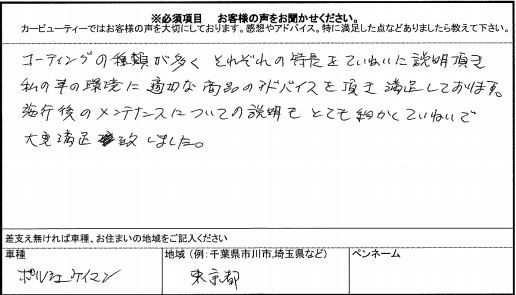 ※必須項目　お客様の声をお聞かせください。
カービューティーではお客様の声を大切にしております。感想やアドバイス。特に満足した点などありましたら教えて下さい。
コーティングの種類が多く それぞれの特長をていねいに説明頂き
私の車の環境に適切な商品のアドバイスを頂き満足しております。
施行後のメンテナンスについての説明も とても細かくていねいで
大変満足致しました。
差支え無ければ車種、お住まいの地域をご記入ください
車種　地域（例：千葉県市川市,埼玉県など）　ペンネーム
ポルシェケイマン　東京都